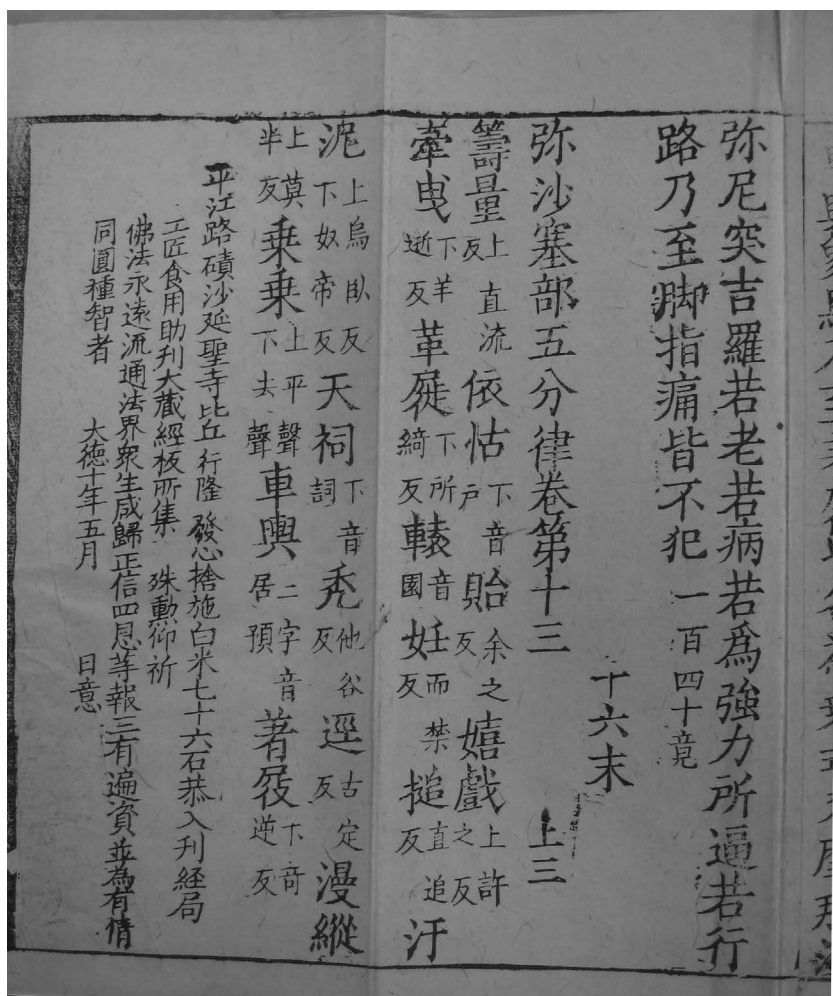 弥尼突吉羅若老若病若爲強力所逼若行
路乃至脚指痛皆不犯 一百四十竟
十六末
弥沙塞部五分律卷第十三 上三
籌量 上直流反 依怙 下音户 貽 余之反 嬉戲 上許之反
牽曳 下羊逝反 革屣 下所綺反 轅 音園 妊 而禁反 搥 直追反 汙
泥 上烏卧反下奴帝反 天祠 下音詞 秃 他谷反 逕 古定反 漫縱
上莫半反 乗乗 上平聲下去聲 車輿 二字音居預 著屐 下奇逆反
平江路磧沙延聖寺比丘 行隆 發心捨施白米七十六石恭入刊経局
工匠食用助刊大藏經板所集 殊勲仰祈
佛法永遠流通法界衆生咸歸正信四恩等報三有遍資並為有情
同圓種智者 大德十年五月 日意